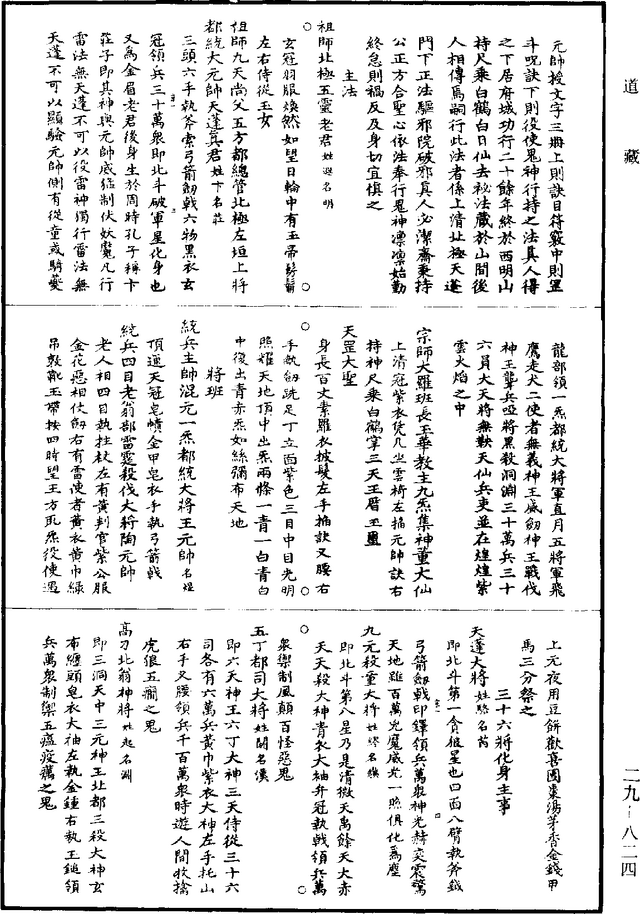 道藏
元帥授文字三冊上則訣目符竅中則罡
斗呪訣下則役使鬼神行持之法真人得
之下居府城功行二十餘年終於西明山
持尺乘白鶴白日仙去秘法藏於山間後
人相傳爲嗣行此法者係上清北極天蓬
門下正法驅邪院破邪真人必潔齋秉持
公正方合聖心依法奉行鬼神凛凛始勤
終怠則禍反及身切宜慎之
主法
祖師北極五靈老君姓逃名明
玄冠羽服煥然如望日輪中有玉帝髣髴
左右侍從玉女
祖師九天尚父五方都總管北極左垣上將
都統大元帥天蓬真君姓卞名莊
三頭六手執斧索弓箭劒戟六物黑衣玄
冠領兵三十萬衆即北斗破軍星化身也
又爲金眉老君後身生於周時孔子稱卞
莊子即其神與元帥威猛制伏妖魔凡行
雷法無天蓬不可以役雷神獨行雷法無
天蓬不可以顯驗元帥側有從童或騎蒼
龍部領一炁都統大將軍直月五將軍飛
鷹走犬二使者無義神王威劒神王戰伐
神王聾兵啞將黑殺洞淵三十萬兵三十
六員大天將無鞅天仙兵吏並在煌煌紫
雲火焰之中
宗師大羅班長玉華教主九炁集神董大仙
上清冠紫衣凭几坐雲椅左掐元帥訣右
持神尺乘白鶴掌三天玉曆玉璽
天罡大聖
身長百丈素羅衣披髮左手掐訣叉腰右
手執劒跣足丁立面紫色三目中目光明
照耀天地頂中出炁兩條一青一白青白
中復出青赤炁如絲彌布天地
將班
統兵主帥混元一炁都統大將王元帥名煌
頂通天冠皂幘金甲皂衣手執弓箭戟
統兵四目老翁部雷霆殺伐大將陶元帥
老人相四目執拄杖左有黄判官紫公服
金花惡相仗劒右有雷使者黄衣黄巾綠
吊敦靴玉帶按四時望王方炁役使遇
上元夜用豆餅歡喜團棗湯茅香金錢甲
馬三分祭之
三十六將化身主事
天蓬大將姓駱名芮
即北斗第一貪狼星也四面八臂執斧鉞
弓箭劒戟印鐸領兵萬衆神光赫奕震驚
天地雖百萬兇魔威光一照俱化爲塵
九元殺童大將姓名
即北斗第八星乃是清微天禹餘天大赤
天天殺大神青衣大袖弁冠執戟領兵萬
衆禦制風顛百怪惡鬼
五丁都司大將姓關名僕
即六天神王六丁大神三天侍從三十六
司各有六萬兵黄巾紫衣大神左手托山
右手叉腰領兵千百萬衆時遊人間收擒
虎狼五癎之鬼
高刁北翁神將姓赴名淵
即三洞天中三元神王北都三殺大神玄
布纏頭皂衣大袖左執金鍾右執玉鎚領
兵萬衆制禦五瘟疫癘之鬼
二九—八二四